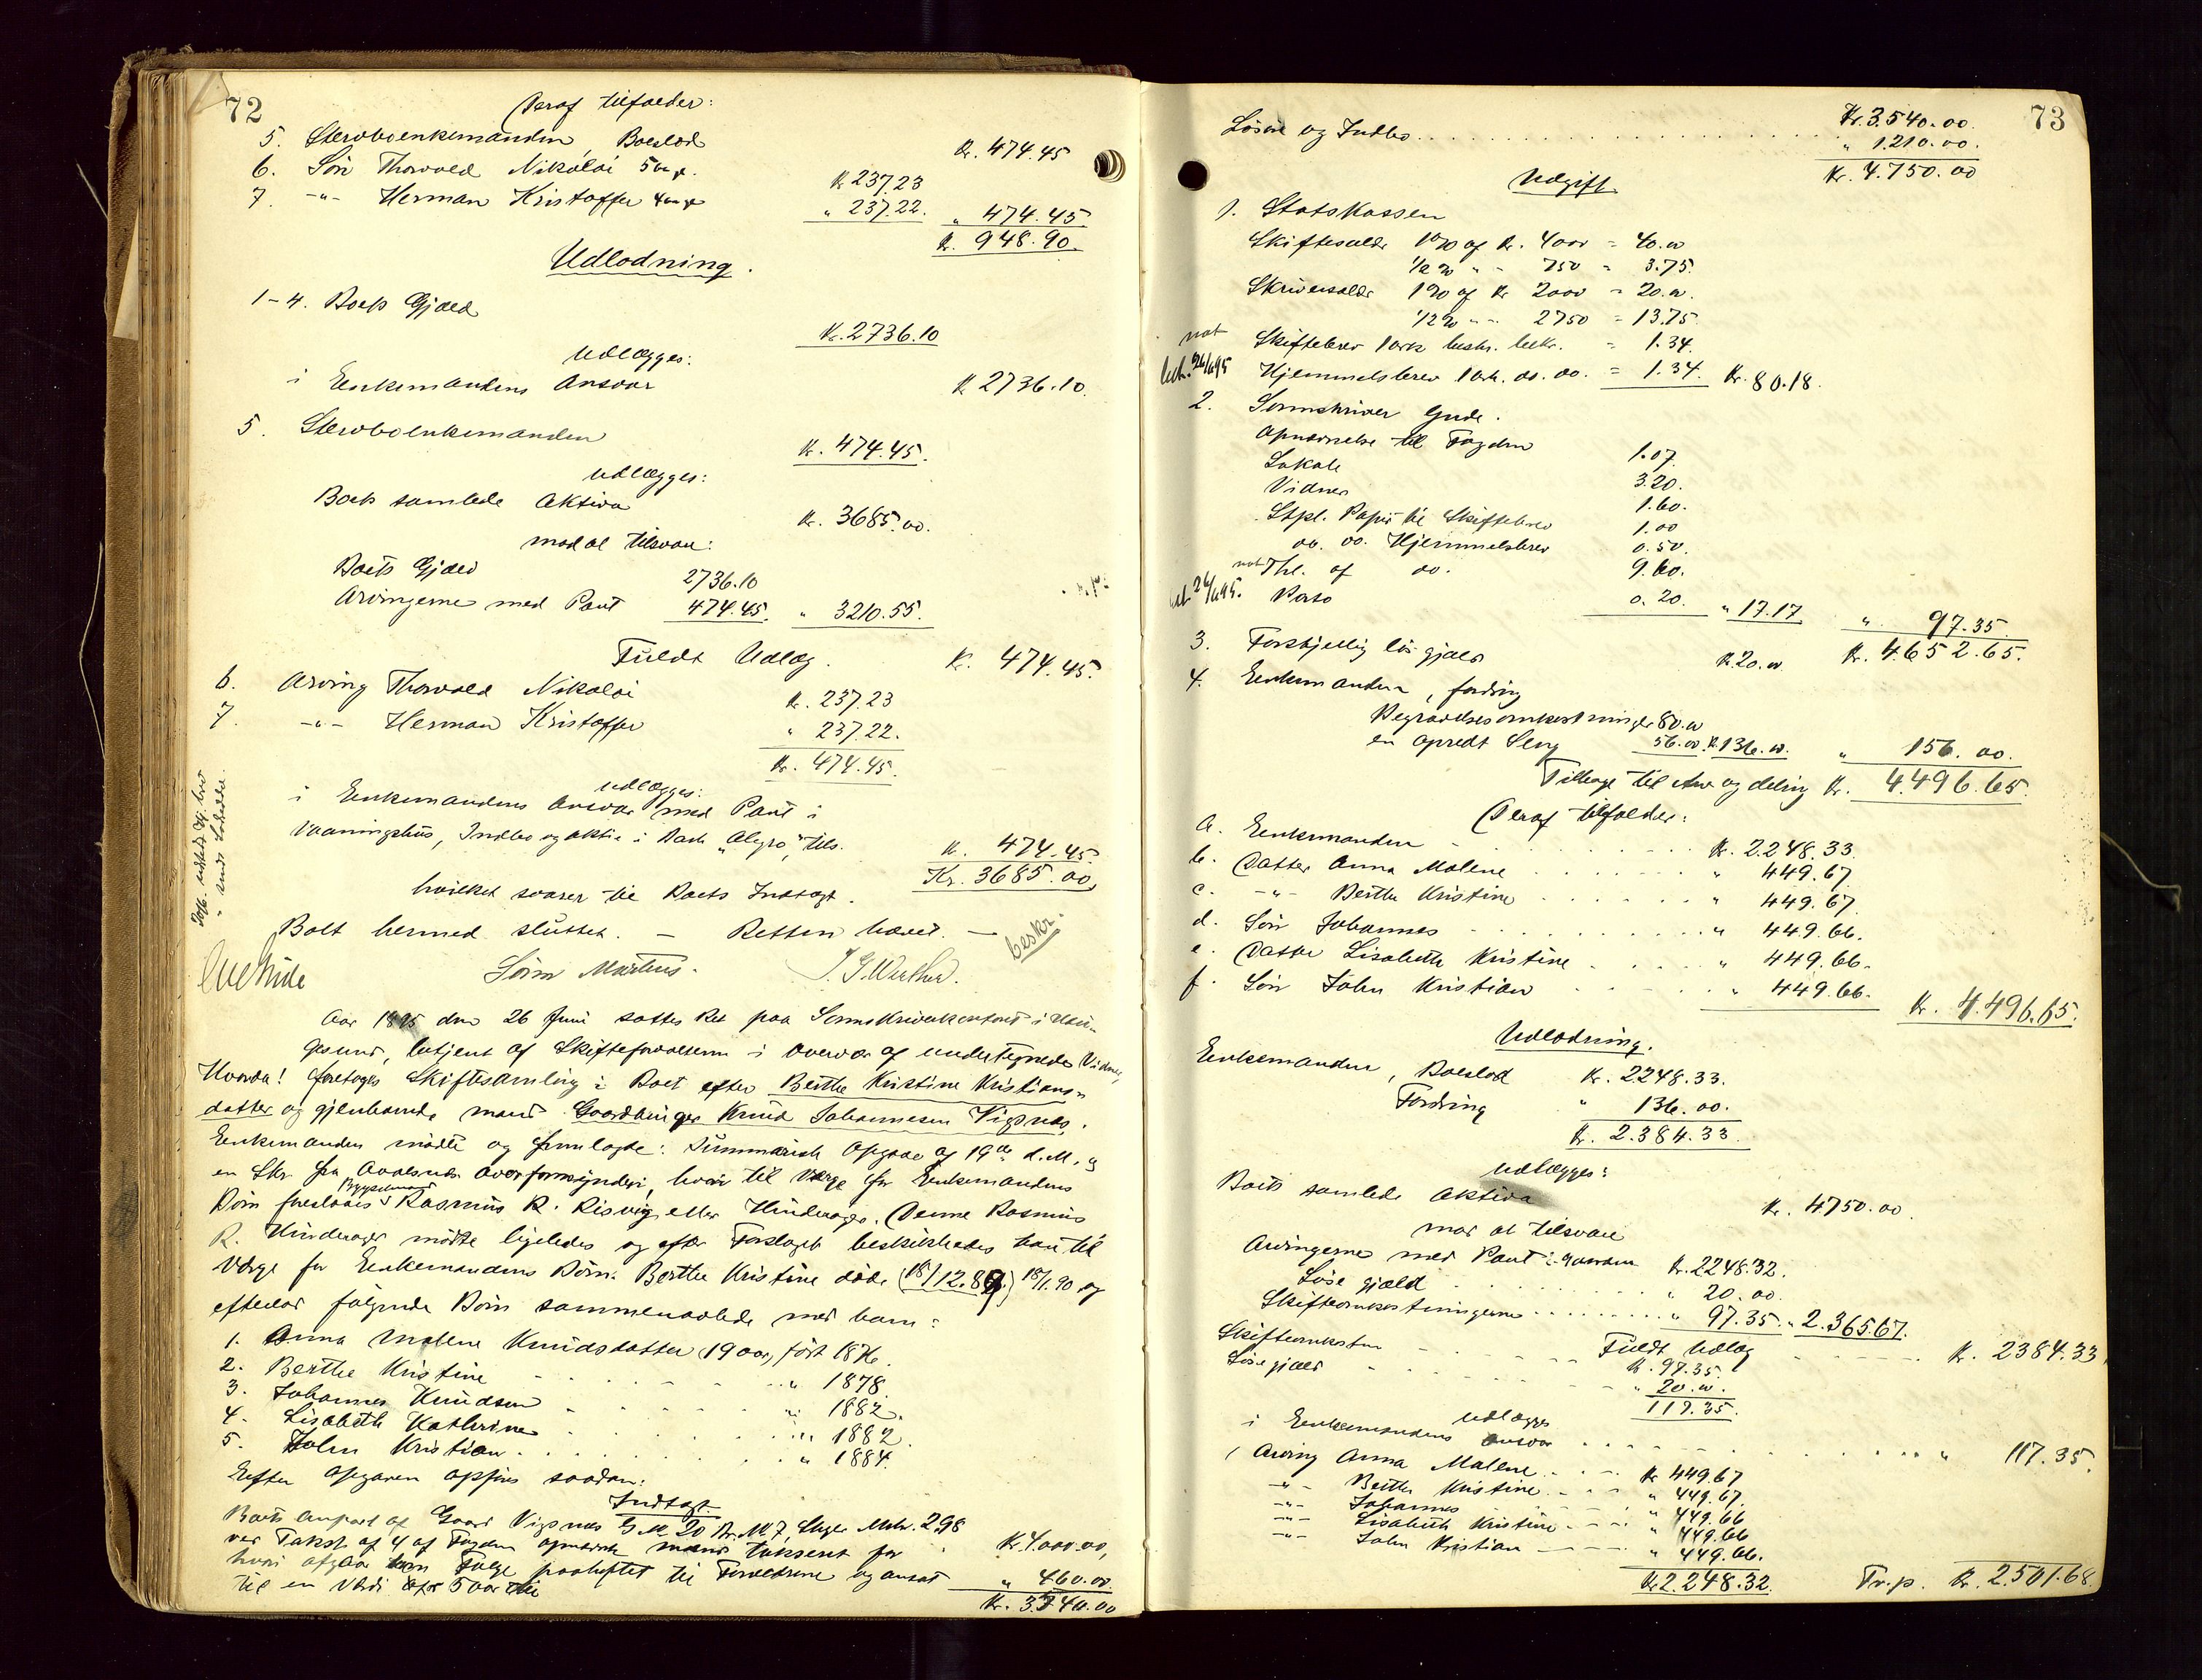 72
Deraf tilfalder:
5. Stervboenkemanden, Boeslod Kr. 474.45
6. Søn Thorvald Nikolai 5 Kr 237.23
7. -"- Herman Kristoffer " 237.22. " 474.45
Kr. 948.90.
Udlodning.
1-4. Boets Gjæld Kr. 2736.10
Udlægges:
i Enkemandens Ansvar Kr 2736.10.
5. Stervboenkemanden Kr. 474.45.
udlægges:
Boets samlede Aktiva Kr. 3685.00.
mod at tilsvare:
Boets Gjæld 2736.10
Arvingerne med Pant 474.45. " 3210.55.
Fuldt Udlæg. Kr. 474.45.
6. Arving Thorvald Nikolai Kr. 237.23
7. -"- Herman Kristoffer " 237.22.
Kr. 474.45.
udlægges:
i Enkemandens Ansvar med Pant i
Vaaningshus, Indbo og Aktie i Bark "Alegro", tils. Kr. 474.45.
Kr. 3685.00,
hvilket svarer til Boets Indtægt.
Boet hermed sluttet. — Retten hævet. —
beskr.
Søren Martens.
Aar 1895 den 26 Juni sattes Ret paa Sorenskriverkontoret i Hau-
gesund, betjent af Skifteforvalteren i Overvær af undertegnede Vidner,
Hvorda! foretoges Skiftesamling i Boet efter Berthe Kristine Kristians-
datter og gjenlevende mand Gaardbruger Knud Johannesen Vigsnæs.
Enkemanden mødte og fremlagde: Summarisk Opgave af 19de d.M. og
en Skr. fra Avalsnæs Overformynderi, hvori til Værge for Enkemandens
Børn foreslaaes Rasmus R. Risvig eller Hinderager. Denne Rasmus
R. Hinderager mødte ligeledes og efter Forslaget beskikkedes han til
Værge for Enkemandens Børn. Berthe Kristine døde (18/12.89.) 18/1.90 og
efterlod følgende Børn sammenavlede med ham:
1. Anna Malene Knudsdatter 19 aar, født 1876.
2. Berthe Kristine " 1878.
3. Johannes Knudsen " 1882.
4. Lisabeth Kathrine " 1882.
5. John Kristian " 1884.
Efter Opgaven opføres saadan:
Indtægt
Boets anpart af Gaard Vigsnæs G.M. 20 Br.M. 7, Skyld Mrk. 2.98
ved Takst af 4 af Fogden opnævnte mænd taxeret for Kr. 4000.00,
hvori afgaar Føderaad paaheftet til Forældrene og ansat
til en Værdi for 5 aar til " 460.00.
Kr. 3540.00
73
Kr. 3.540.00.
Løsøre og Indbo " 1.210.00.
Kr. 4.750.00
Udgift.
1. Statskassen
Skiftesalær 1% af Kr. 4000 = 40.00
1/2% " - 750 = 3.75.
Skriversalær 1% af Kr 2000 = 20.00.
1/2% " - 2750 = 13.75.
not Skiftebrev 1 ark beskr. bekr. = 1.34.
Hjemmelsbrev 1 ark. do. do. = 1.34. Kr. 80.18.
2. Sorenskriver Gude.
Opnævnelse til Fogden 1.07.
Lokale 3.20.
Vidner 1.60.
Stpl. Papir til Skiftebrev 1.00
do. do. Hjemmelsbrev 0.50.
not Thl. af do. 9.60.
Porto 0.20. " 17.17. " 97.35
Kr. 4.652.65.
3. Forskjellig løs gjæld Kr. 20.00
4. Enkemanden, fordring
Begravelsesomkostninger 80.00
en opredt Seng 56.00. Kr. 136.00. " 156.00.
Tilbage til Arv og deling Kr. 4.496.65.
Deraf tilfalder:
a. Enkemanden Kr. 2.248.33.
b. Datter Anna Malene " 449.67
c. -"- Berthe Kristine " 449.67.
d. Søn Johannes " 449.66.
e. Datter Lisabeth Kristine " 449.66.
f. Søn John Kristian " 449.66. Kr. 4.496.65.
Udlodning.
Enkemanden, Boeslod Kr. 2248.33.
Fordring " 136.00.
Kr. 2.384.33.
udlægges:
Boets samlede Aktiva Kr. 4750.00.
mod at tilsvare
Arvingerne med Pant i Gaarden Kr. 2248.32.
Løse gjæld " 20.00.
Skifteomkostningerne " 97.35. " 2.365.67.
Fuldt Udlæg Kr. 2384.33.
Skifteomkostn. Kr. 97.35.
Løse gjæld " 20.00.
117.35.
udlægges
i Enkemandens Ansvar " 117.35.
Arving Anna Malene Kr 449.67
-"- Berthe Kristine " 449.67.
-"- Johannes " 449.66
-"- Lisabeth Kristine " 449.66
-"- John Kristian " 449.66.
Kr. 2.248.32. Tr.p. Kr. 2.501.68.